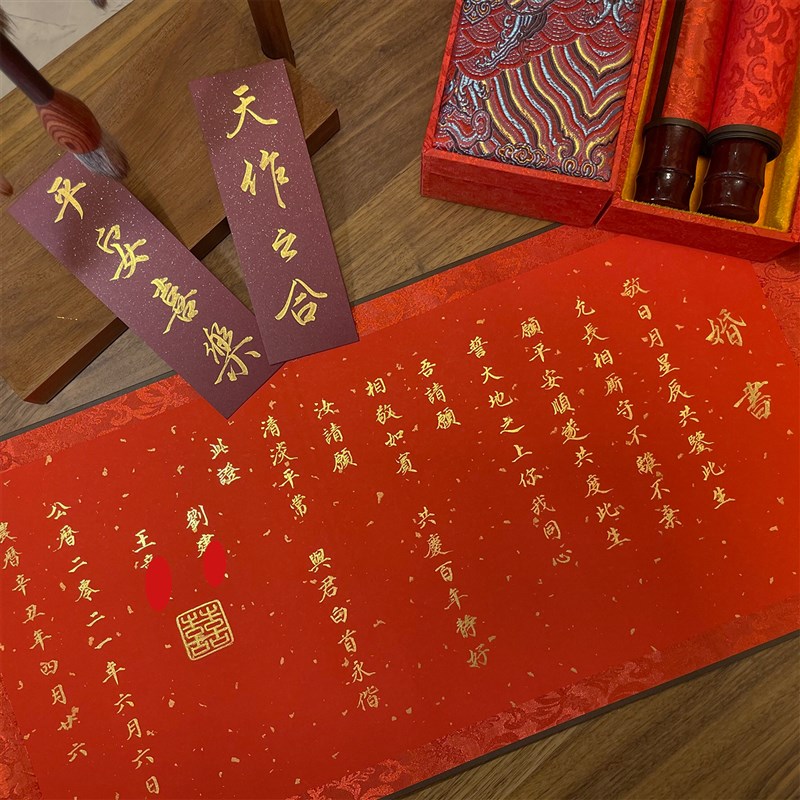 天作之合
平安喜樂
婚書
敬日月星辰共鑒此生
允長相所守不離不棄
願平安順遂共度此生
誓大地之上你我同心
吾請願
相敬如賓 共慶百年靜好
汝請願
清淡平常 與君白首永偕
此證
劉
王
囍
公曆二零二一年六月六日
農曆辛丑年四月廿六